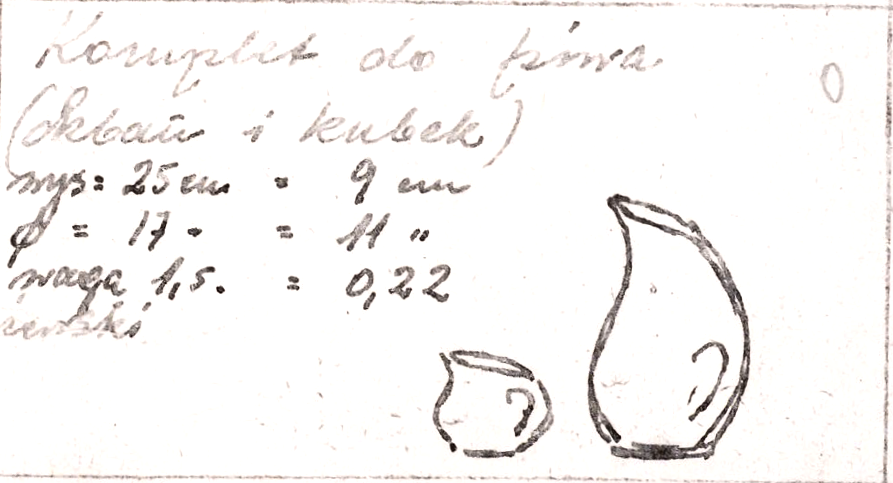 Komplet do piwa
(dzban i kubek)
wys = 25 cm = 9 cm
φ = 17 " = 11 "
waga 1,5. = 0,22